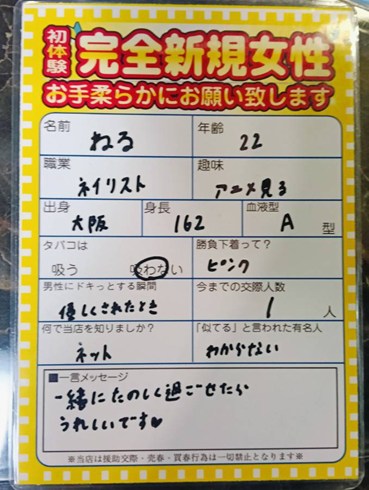 初体験
完全新規女性
お手柔らかにお願い致します
名前 ねる 年齢 22
職業 ネイリスト 趣味 アニメ見る
出身 大阪 身長 162 血液型 A 型
タバコは 吸う 吸わない 勝負下着って? ピンク
男性にドキっとする瞬間 優しくされたとき 今までの交際人数 1 人
何で当店を知りましたか? ネット 「似てる」と言われた有名人 わからない
■一言メッセージ
一緒にたのしく過ごせたら
うれしいです♥
※当店は援助交際・売春・買春行為は一切禁止となります※